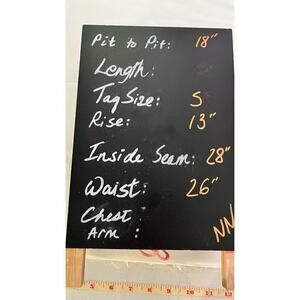 Pit to Pit: 18"
Length:
Tag Size: S
Rise: 13"
Inside Seam: 28"
Waist: 26"
Chest
Arm :
NN